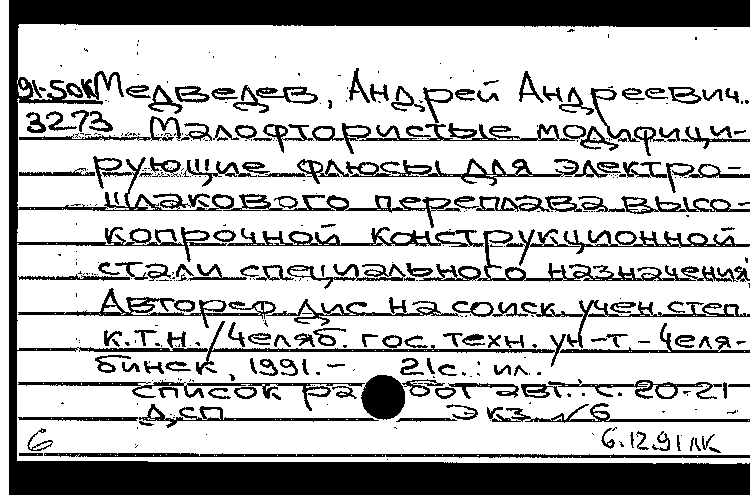 91-50К Медведев, Андрей Андреевич.
3273 Малофтористые модифици-
рующие флюсы для электро-
шлакового переплава высо-
копрочной конструкционной
стали специального назначения:
Автореф. дис. на соиск. учен. степ.
к.т.н. / Челяб. гос. техн. ун-т - Челя-
бинск, 1991. - 21с.: ил.
список работ авт.: с. 20-21
Дсп Экз. №6
6 6.12.91 ЛК